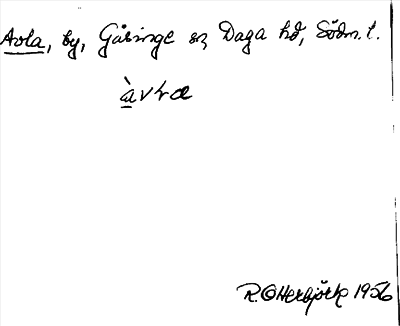 Avla, by, Gåsinge sn, Daga hd, Södm. l.
àvra
R.O Herbjörk 1956